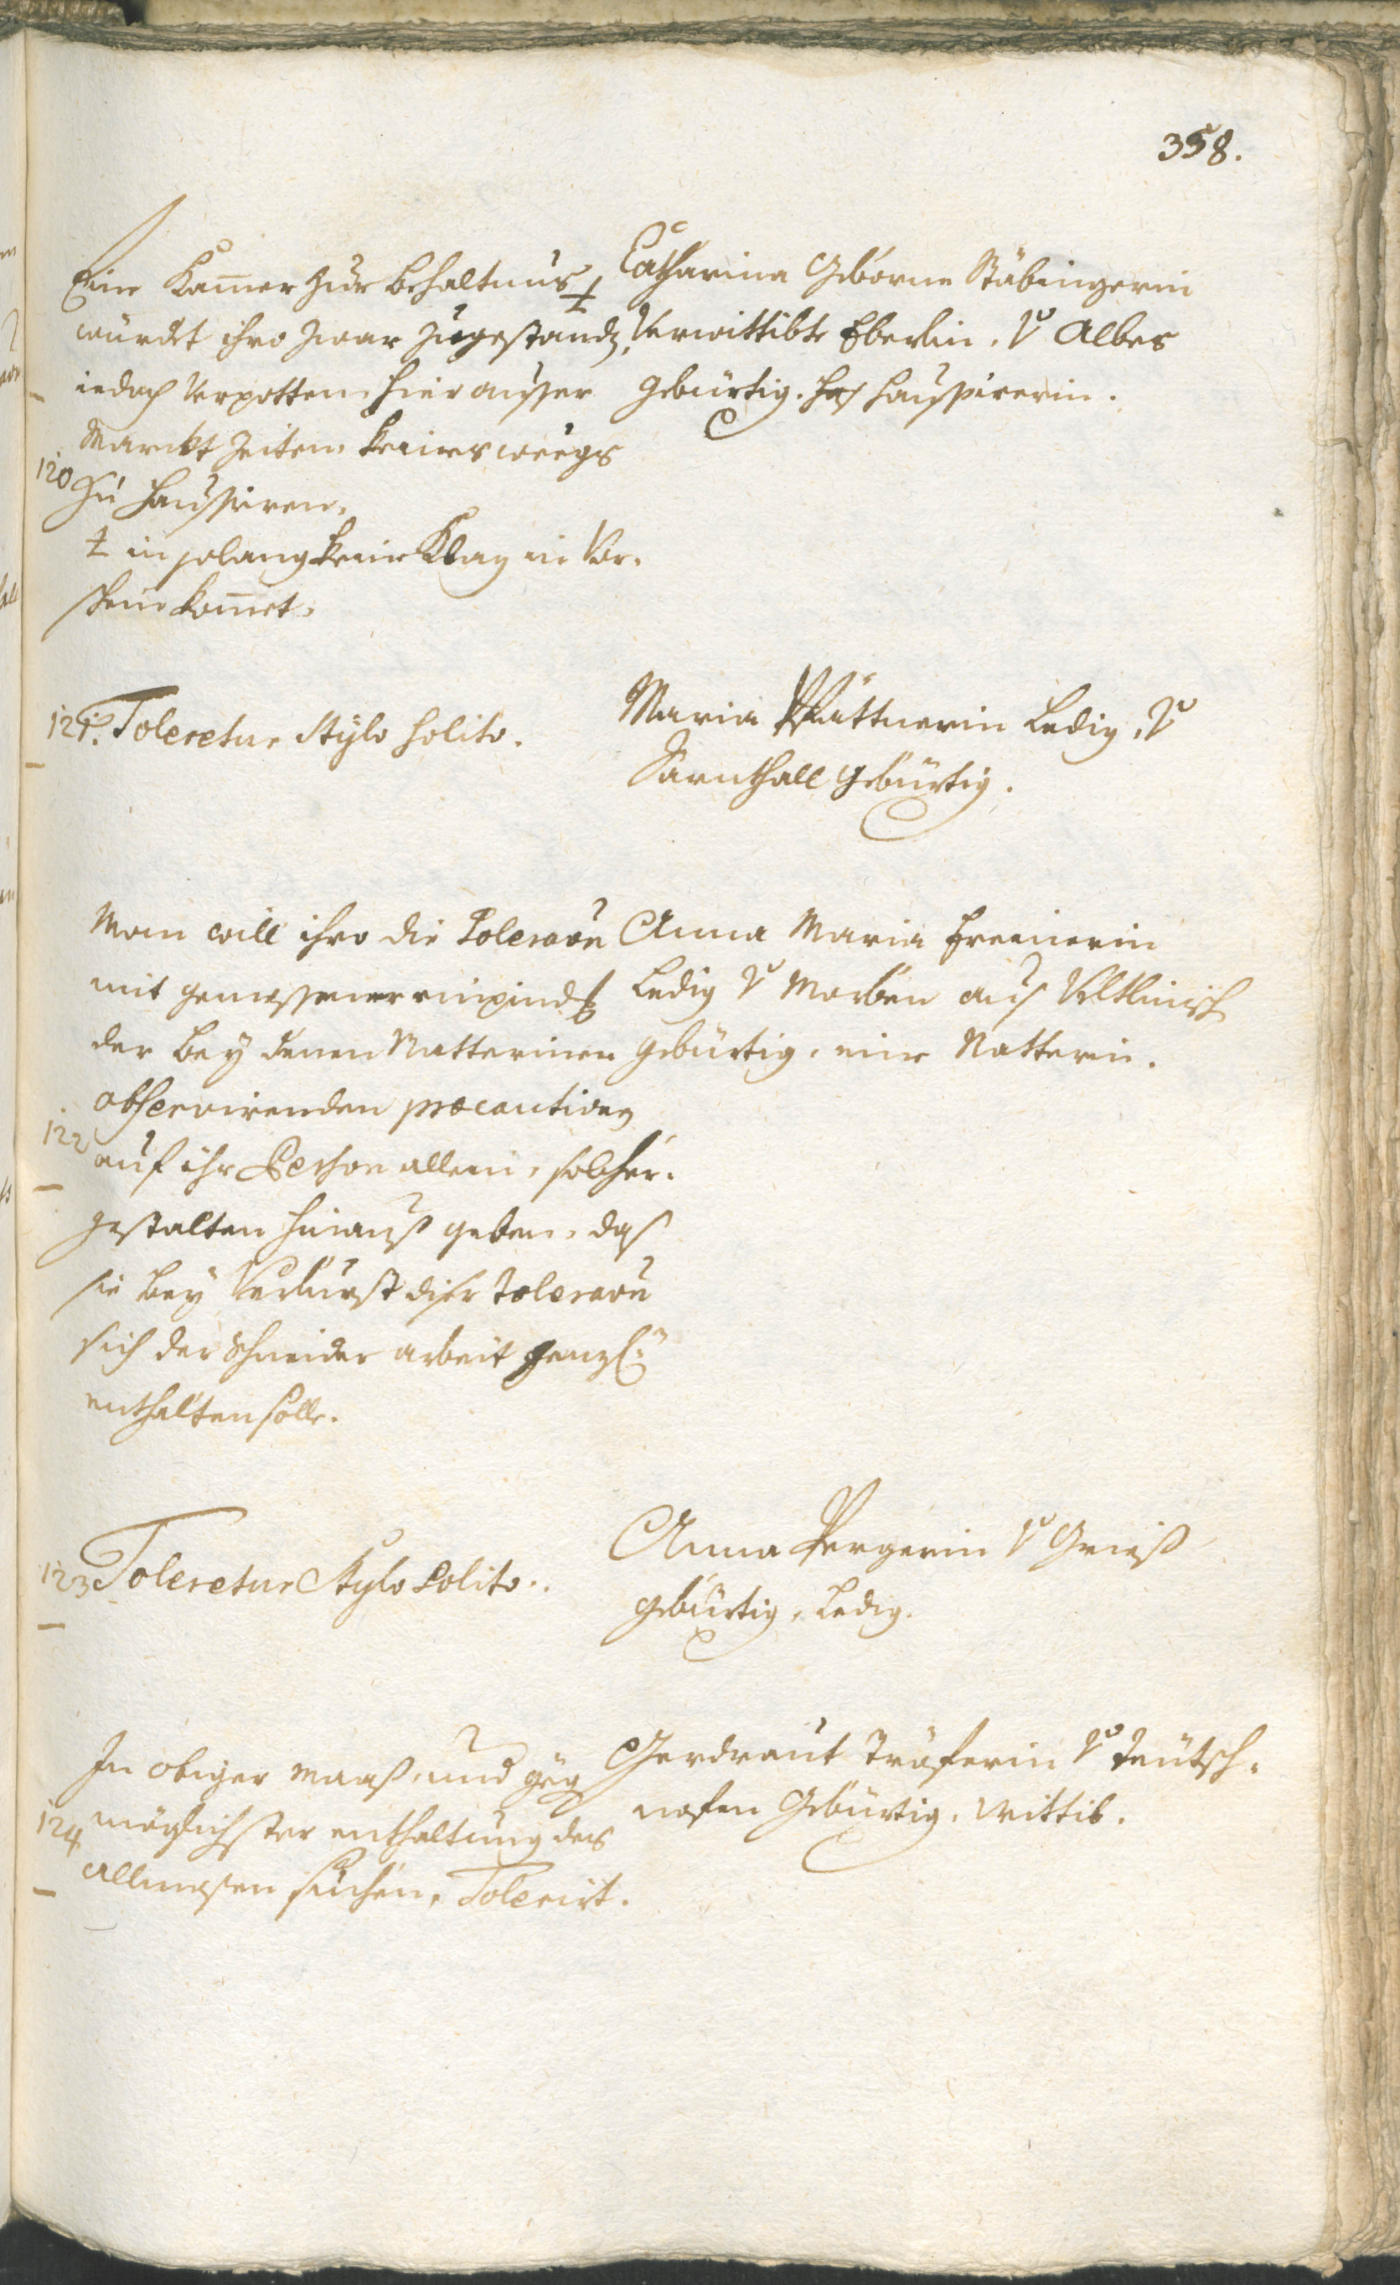 358.
Eine Kam̅er zur behaltnus ‡
würdt ihro zwar zugestandn,
iedoch verpotten hier ausser
Marckt zeiten keinesweegs
120 zu haussiren.
‡ in solang keine Klag in Vor-
schein kom̅et.
Catharina Geborne Stäbingerin
Verwittibte Eberlin. V Albes
gebürtig. haussirerin.
121. Toleretur Stylo solito.
Maria Plattnerin Ledig, V
Sarnthall gebürtig.
Man will ihro die Toleraōn
mit gemessener einpindtg
der bey denen Natterinen
observirenden praecautionen
122 auf ihr Persohn allein, solcher-
gestalten hinauß geben, daß
sie bey Verlurst diser Toleraōn
sich der schneider arbeit genzl:
enthalten solle.
Anna Maria
Ledig V Morben aus Veltlinisch
gebürtig. eine Natterin.
123 Toleretur Stylo Solito.
Anna Pergerin V Grieß
gebürtig, Ledig.
In obiger maaß, und geg
124 möglichster enthaltung des
allmosen suchen, Tolerirt.
Gerdraut Träferin V teütsch-
nofen Gebürtig. Wittib.